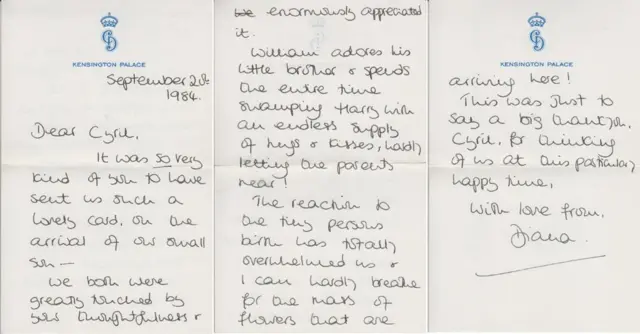 KENSINGTON PALACE
September 20th
1984.
Dear Cyril,
It was so very
kind of you to have
sent us such a
lovely card, on the
arrival of our small
son -
We both were
greatly touched by
your thoughtfulness &
we enormously appreciated
it.
William adores his
little brother & spends
the entire time
swamping Harry with
an endless supply
of hugs & kisses, hardly
letting the parents
near!
The reaction to
one tiny persons
birth has totally
overwhelmed us &
I can hardly breathe
for the mass of
flowers that are
KENSINGTON PALACE
arriving here!
This was just to
say a big thank you,
Cyril, for thinking
of us at this particularly
happy time,
with love from,
Diana.